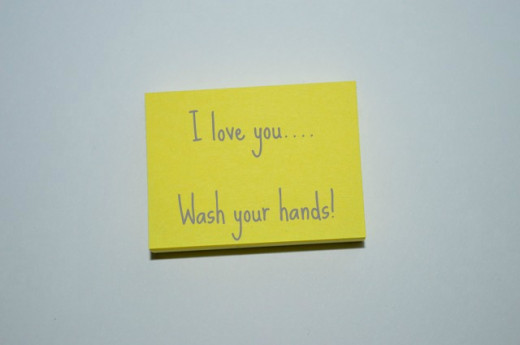 I love you....
Wash your hands!